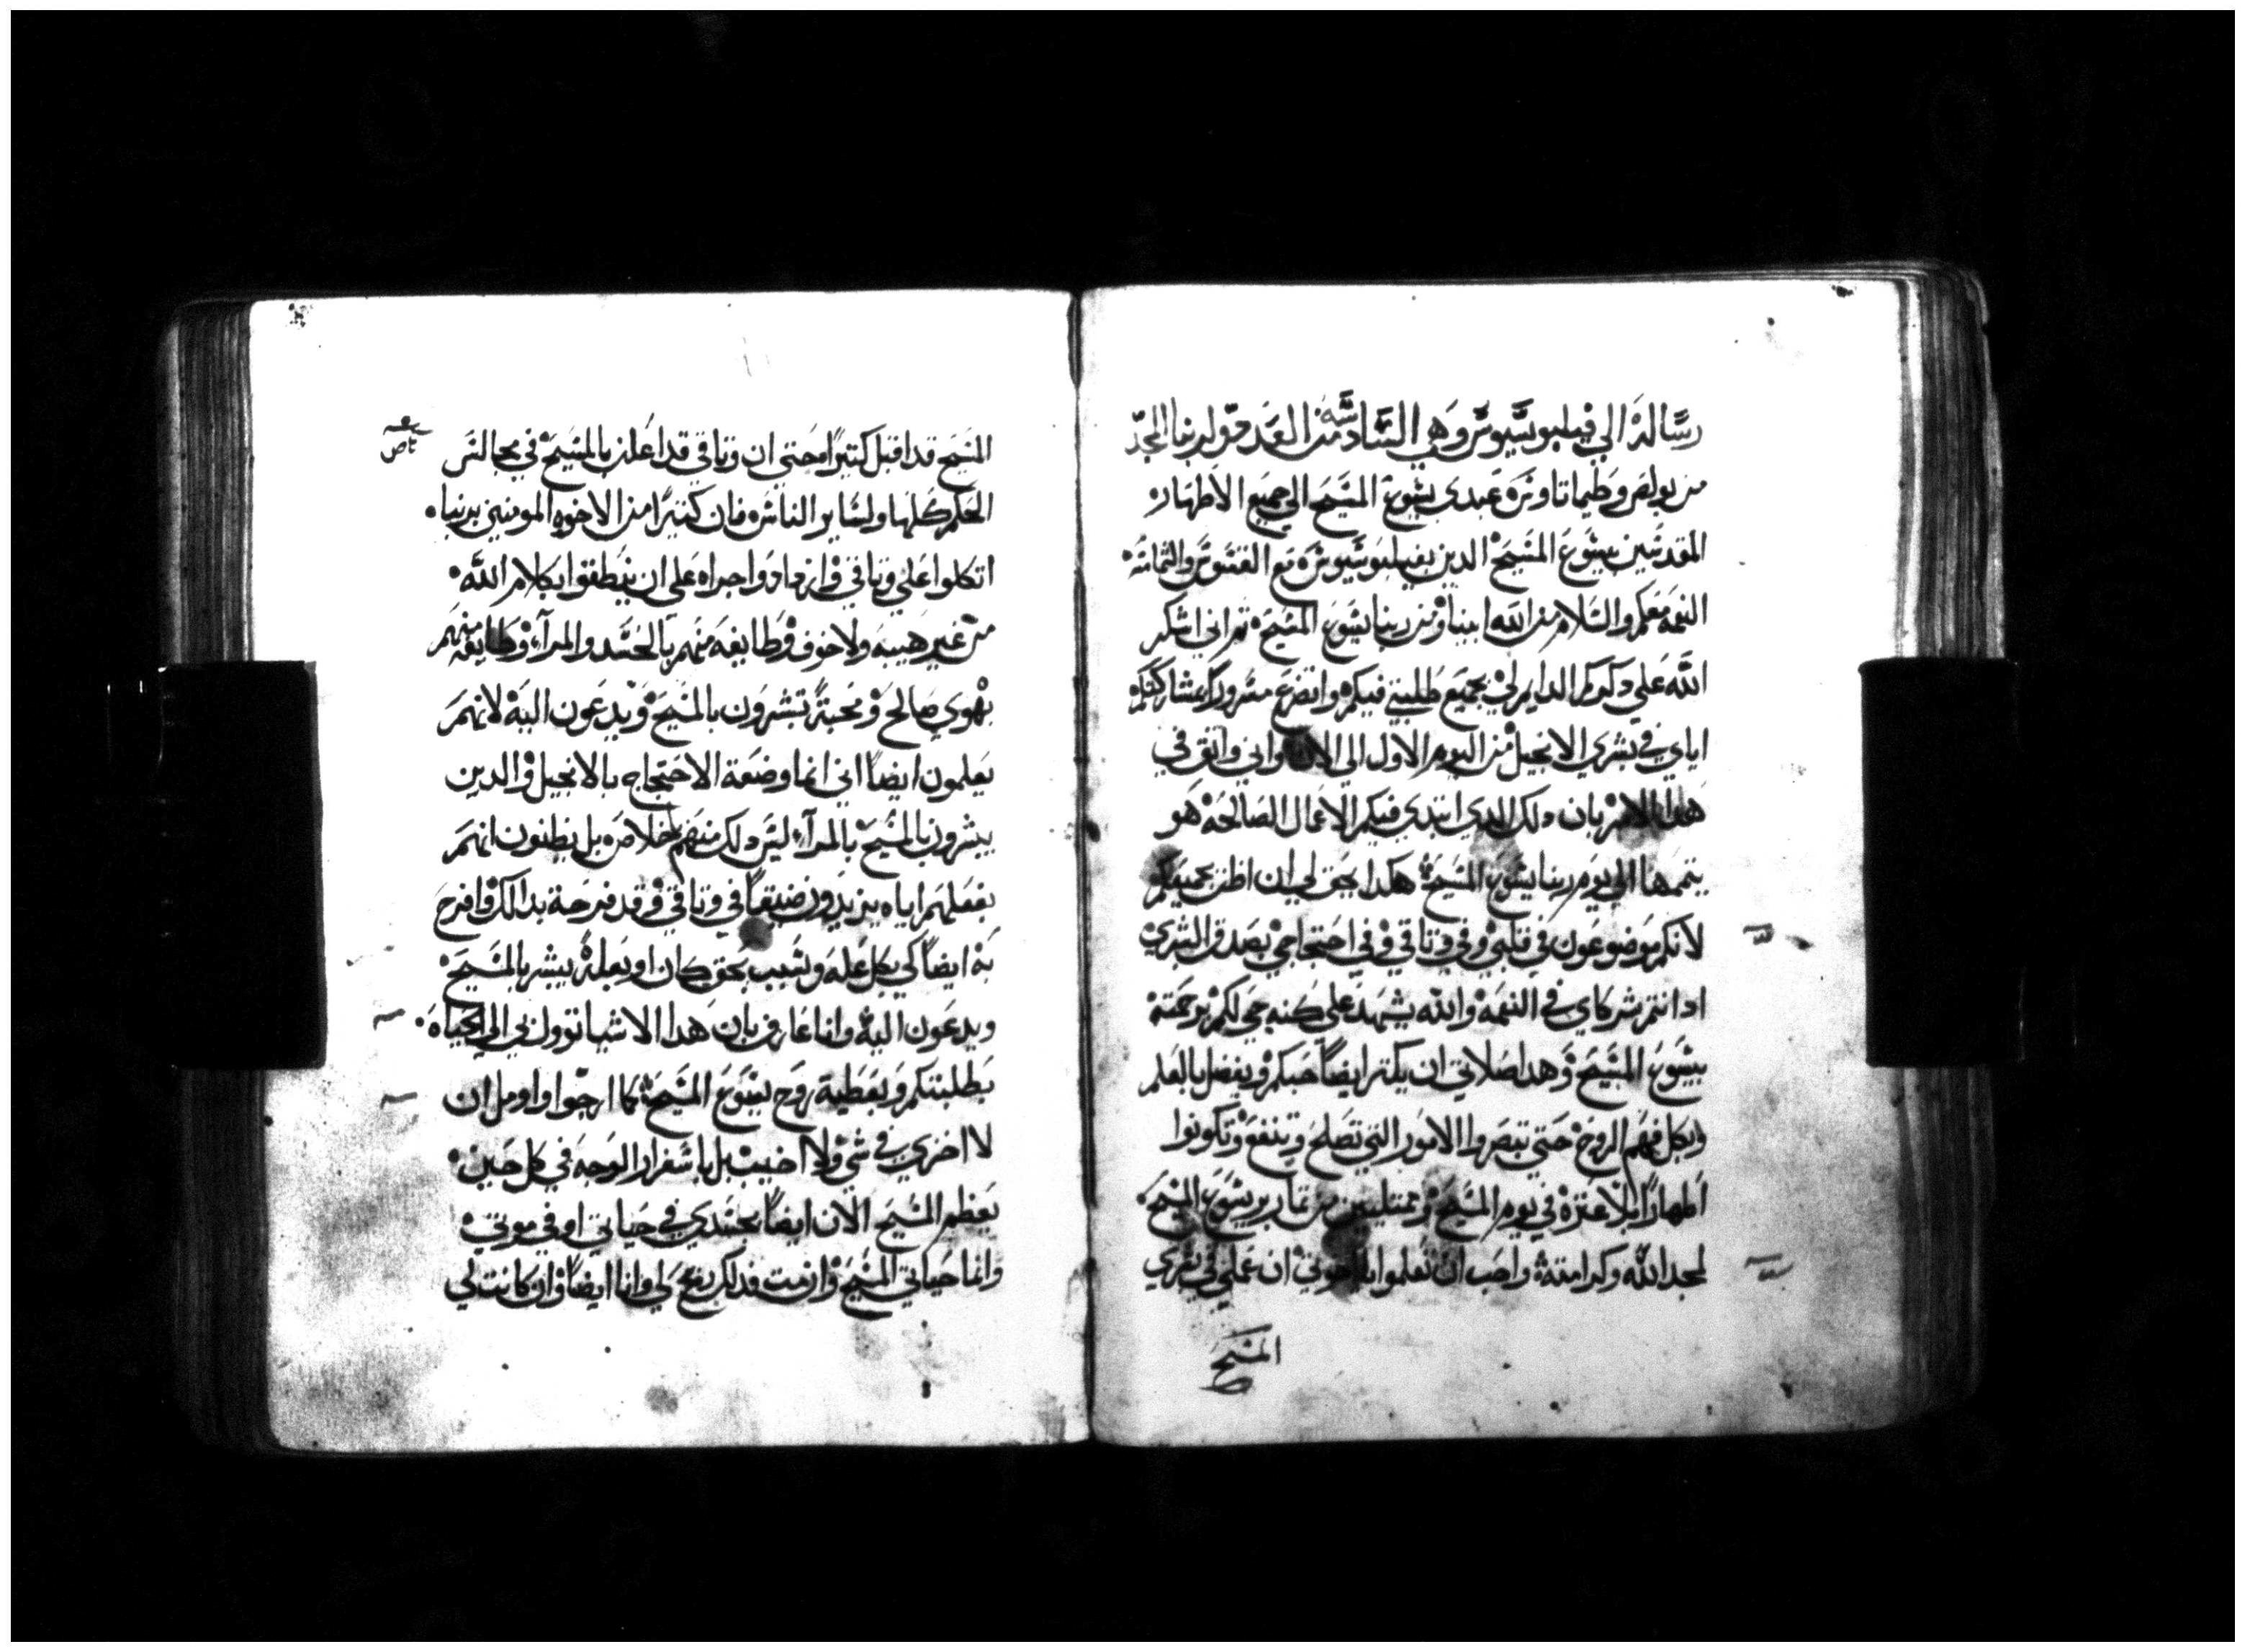 رسالة الي فيلبوسيوس وهي السادسة من العدد قول ربنا المجد
من بولص وطيماتاوس عبدي يشوع المسيح الي جميع الاطهار
المقدسين بيشوع المسيح الدين بفيلبوسيوس مع القسوس والشمامسة
النعمة معكم والسلام من الله ابينا ومن ربنا يشوع المسيح ثم اني اشكر
الله علي دكركم الدايم لي بجميع طلبتي فيكم واتضرع مسرورا بمشاركتكم
اياي في بشري الانجيل من اليوم الاول الي الان واني واثق في
هدا الامر بان دلك الدي ابتدي فيكم الاعمال الصالحة هو
يتممها الي يوم ربنا يشوع المسيح هكدا يحق لي ان اظن بجميعكم
لانكم موضوعون في قلبي وفي وتاقي وفي احتجاجي بصدق البشري
اد انتم شركاي في النعمة والله يشهد علي كنه حبي لكم برحمة
يشوع المسيح وهدا صلاتي ان يكتر ايضا حبكم ويفضل بالعلم
وبكل فهم الروح حتي تبصروا الامور التي تصلح وتنفع وتكونوا
اطهارا بلا عترة في يوم المسيح وممتليين من تمار بر يشوع المسيح
لمجد الله وكرامته واحب ان تعلموا يا اخوتي ان عملي في بشري
المسيح
المسيح قد اقبل كتيرا حتي ان وتاقي قد اعلن بالمسيح في مجالس
الحكم كلها ولساير الناس فان كتيرا من الاخوه المومنين بربنا
اتكلوا علي وتاقي وازدادوا جراه علي ان ينطقوا بكلام الله
من غير هيبه ولا خوف وطايفه منهم بالحسد والمرآء وطايفه منهم
بهوي صالح ومحبة تبشرون بالمسيح ويدعون اليه لانهم
يعلمون ايضا اني انما وضعة الاحتجاج بالانجيل والدين
يبشرون بالمسيح بالمرآء ليس دلك منهم باخلاص بل يظنون انهم
بفعلهم اياه يزيدون ضيقا في وتاقي وقد فرحة بدالك وافرح
به ايضا لي بكل علة وسبب بحق كان او بعلة يبشر بالمسيح
ويدعون اليه وانا عارف بان هدا الاشيا توول بي الي الحياه
بطلبتكم وبعطية روح يشوع المسيح كما ارجوا واومل ان
لا اخزي في شي ولا اخيب بل باسفرار الوجه في كل حين
يعظم المسيح الان ايضا بجسدي في حياتي او في موتي
وانما حياتي المسيح وان مت فدلك ربح لي وانا ايضا وان كانت لي